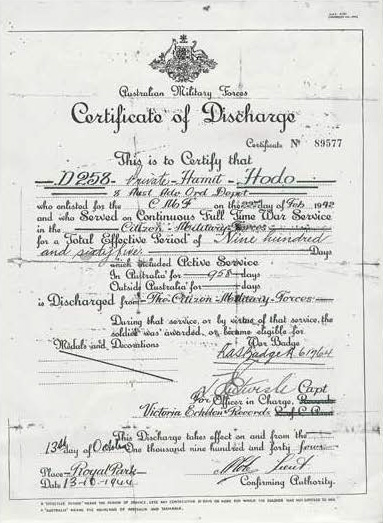 Australian Military Forces
Certificate of Discharge
Certificate No 89577
This is to Certify that
D258 Private Hamit Hodo
8 Aust Adv Ord Depot
who enlisted for the C M F on the 22nd day of Feb 1942
and who Served on Continuous Full Time War Service
in the Citizen Military Forces
for a Total Effective Period of Nine hundred
and sixty five Days
which included Active Service
In Australia for 958 days
Outside Australia for days
is Discharged from The Citizen Military Forces
During that service, or by virtue of that service, the
soldier was awarded, or became eligible for
Medals and Decorations War Badge
RAS Badge A 61764
Capt
For Officer in Charge, Records
Victoria Echelon Records
This Discharge takes effect on and from the
13th day of October
One thousand nine hundred and forty four
Place Royal Park Lieut
Date 13-10-1944 Confirming Authority.